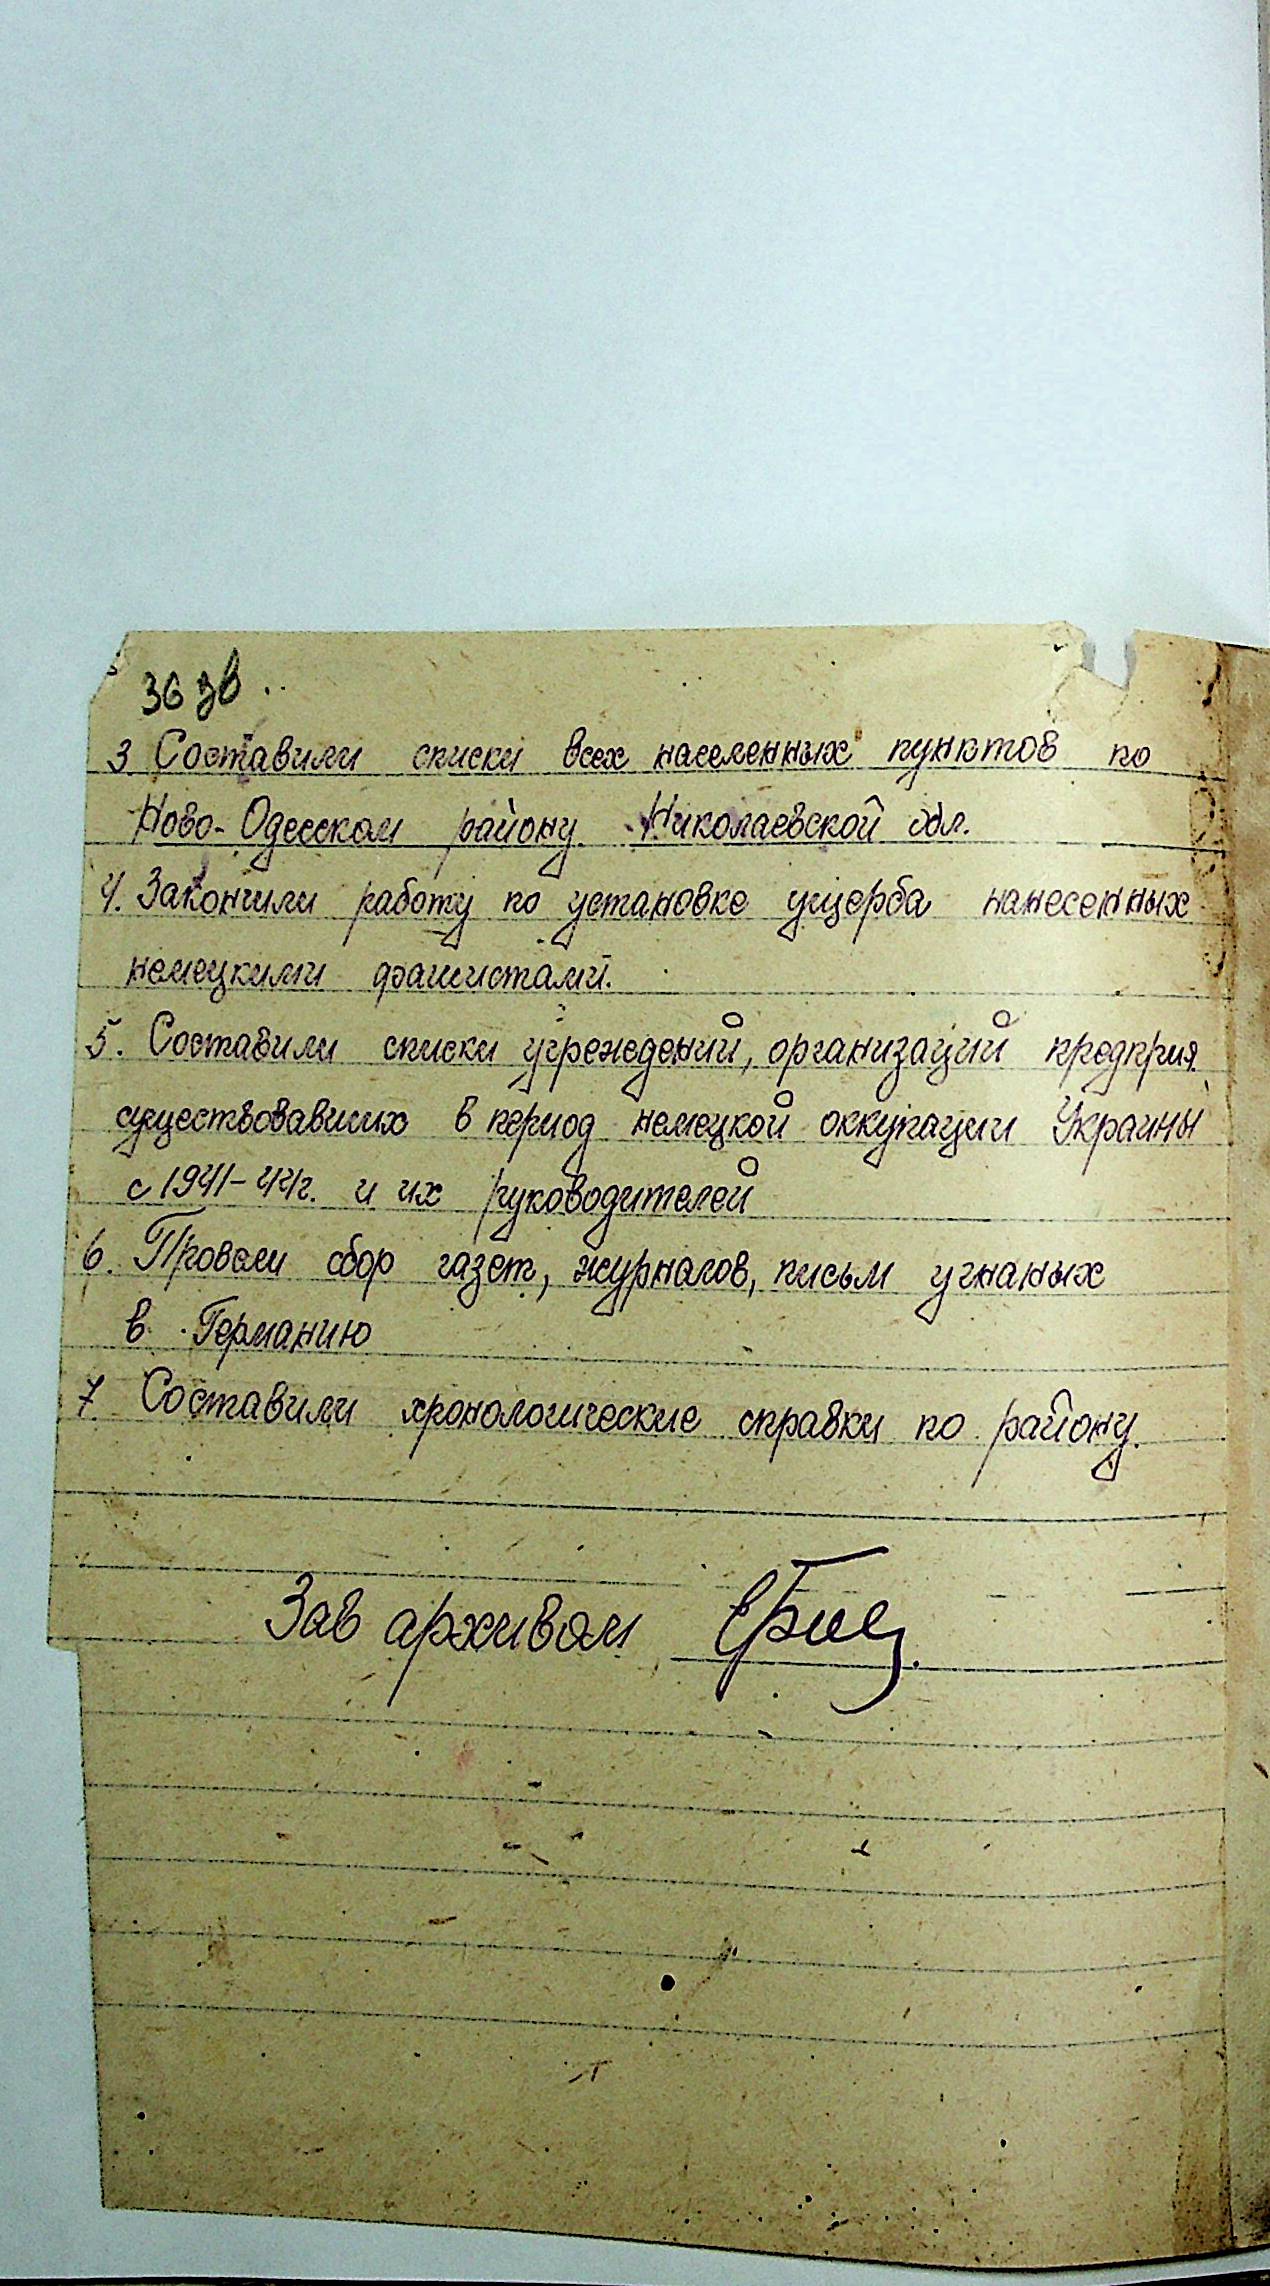 36 зв.
3. Составили списки всех населенных пунктов по
Ново-Одесском району. Николаевской обл.
4. Закончили работу по установке ущерба нанесенных
немецкими фашистами.
5. Составили списки учреждений, организаций предприя
существовавших в период немецкой оккупации Украины
с 1941-44г. и их руководителей
6. Провели сбор газет, журналов, письм угнаных
в Германию
7. Составили хронологические справки по району.
Зав архивом